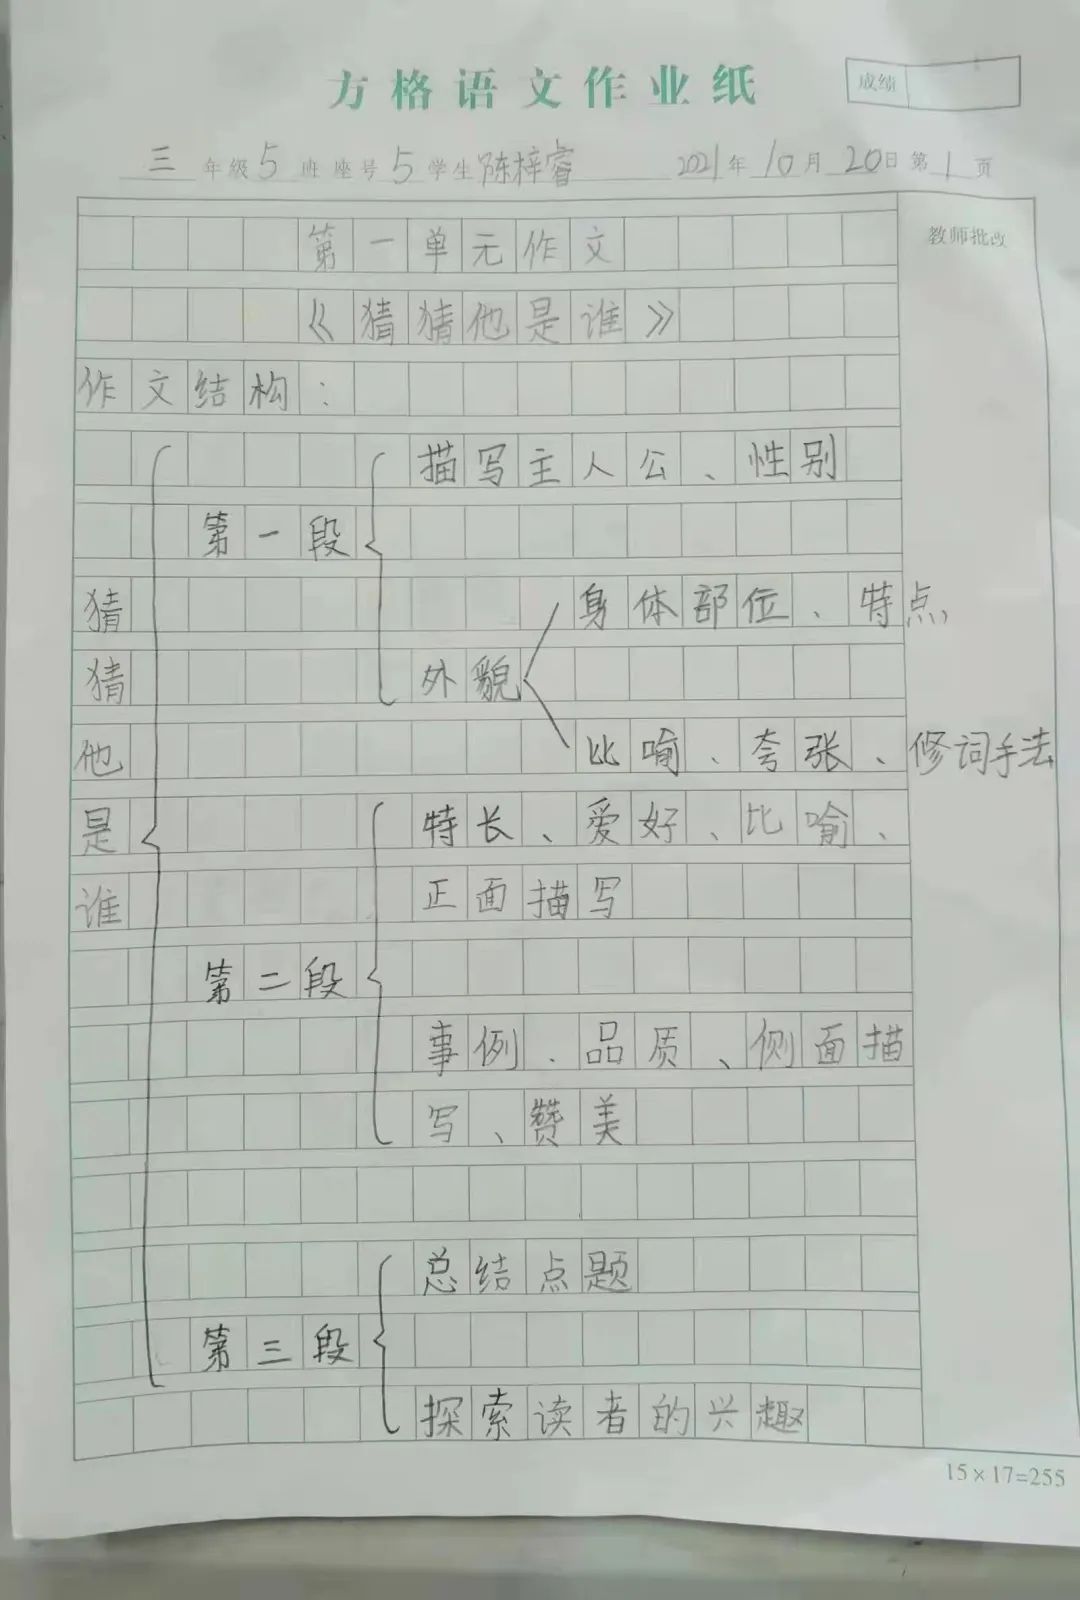 方格语文作业纸
成绩
三年级5班座号5学生陈梓睿 2021年10月20日第1页
教师批改
第一单元作文
《猜猜他是谁》
作文结构:
描写主人公、性别
第一段
身体部位、特点、
外貌
比喻、夸张、修词手法
猜猜他是谁
特长、爱好、比喻、
正面描写
第二段
事例、品质、侧面描
写、赞美
总结点题
第三段
探索读者的兴趣
15×17=255